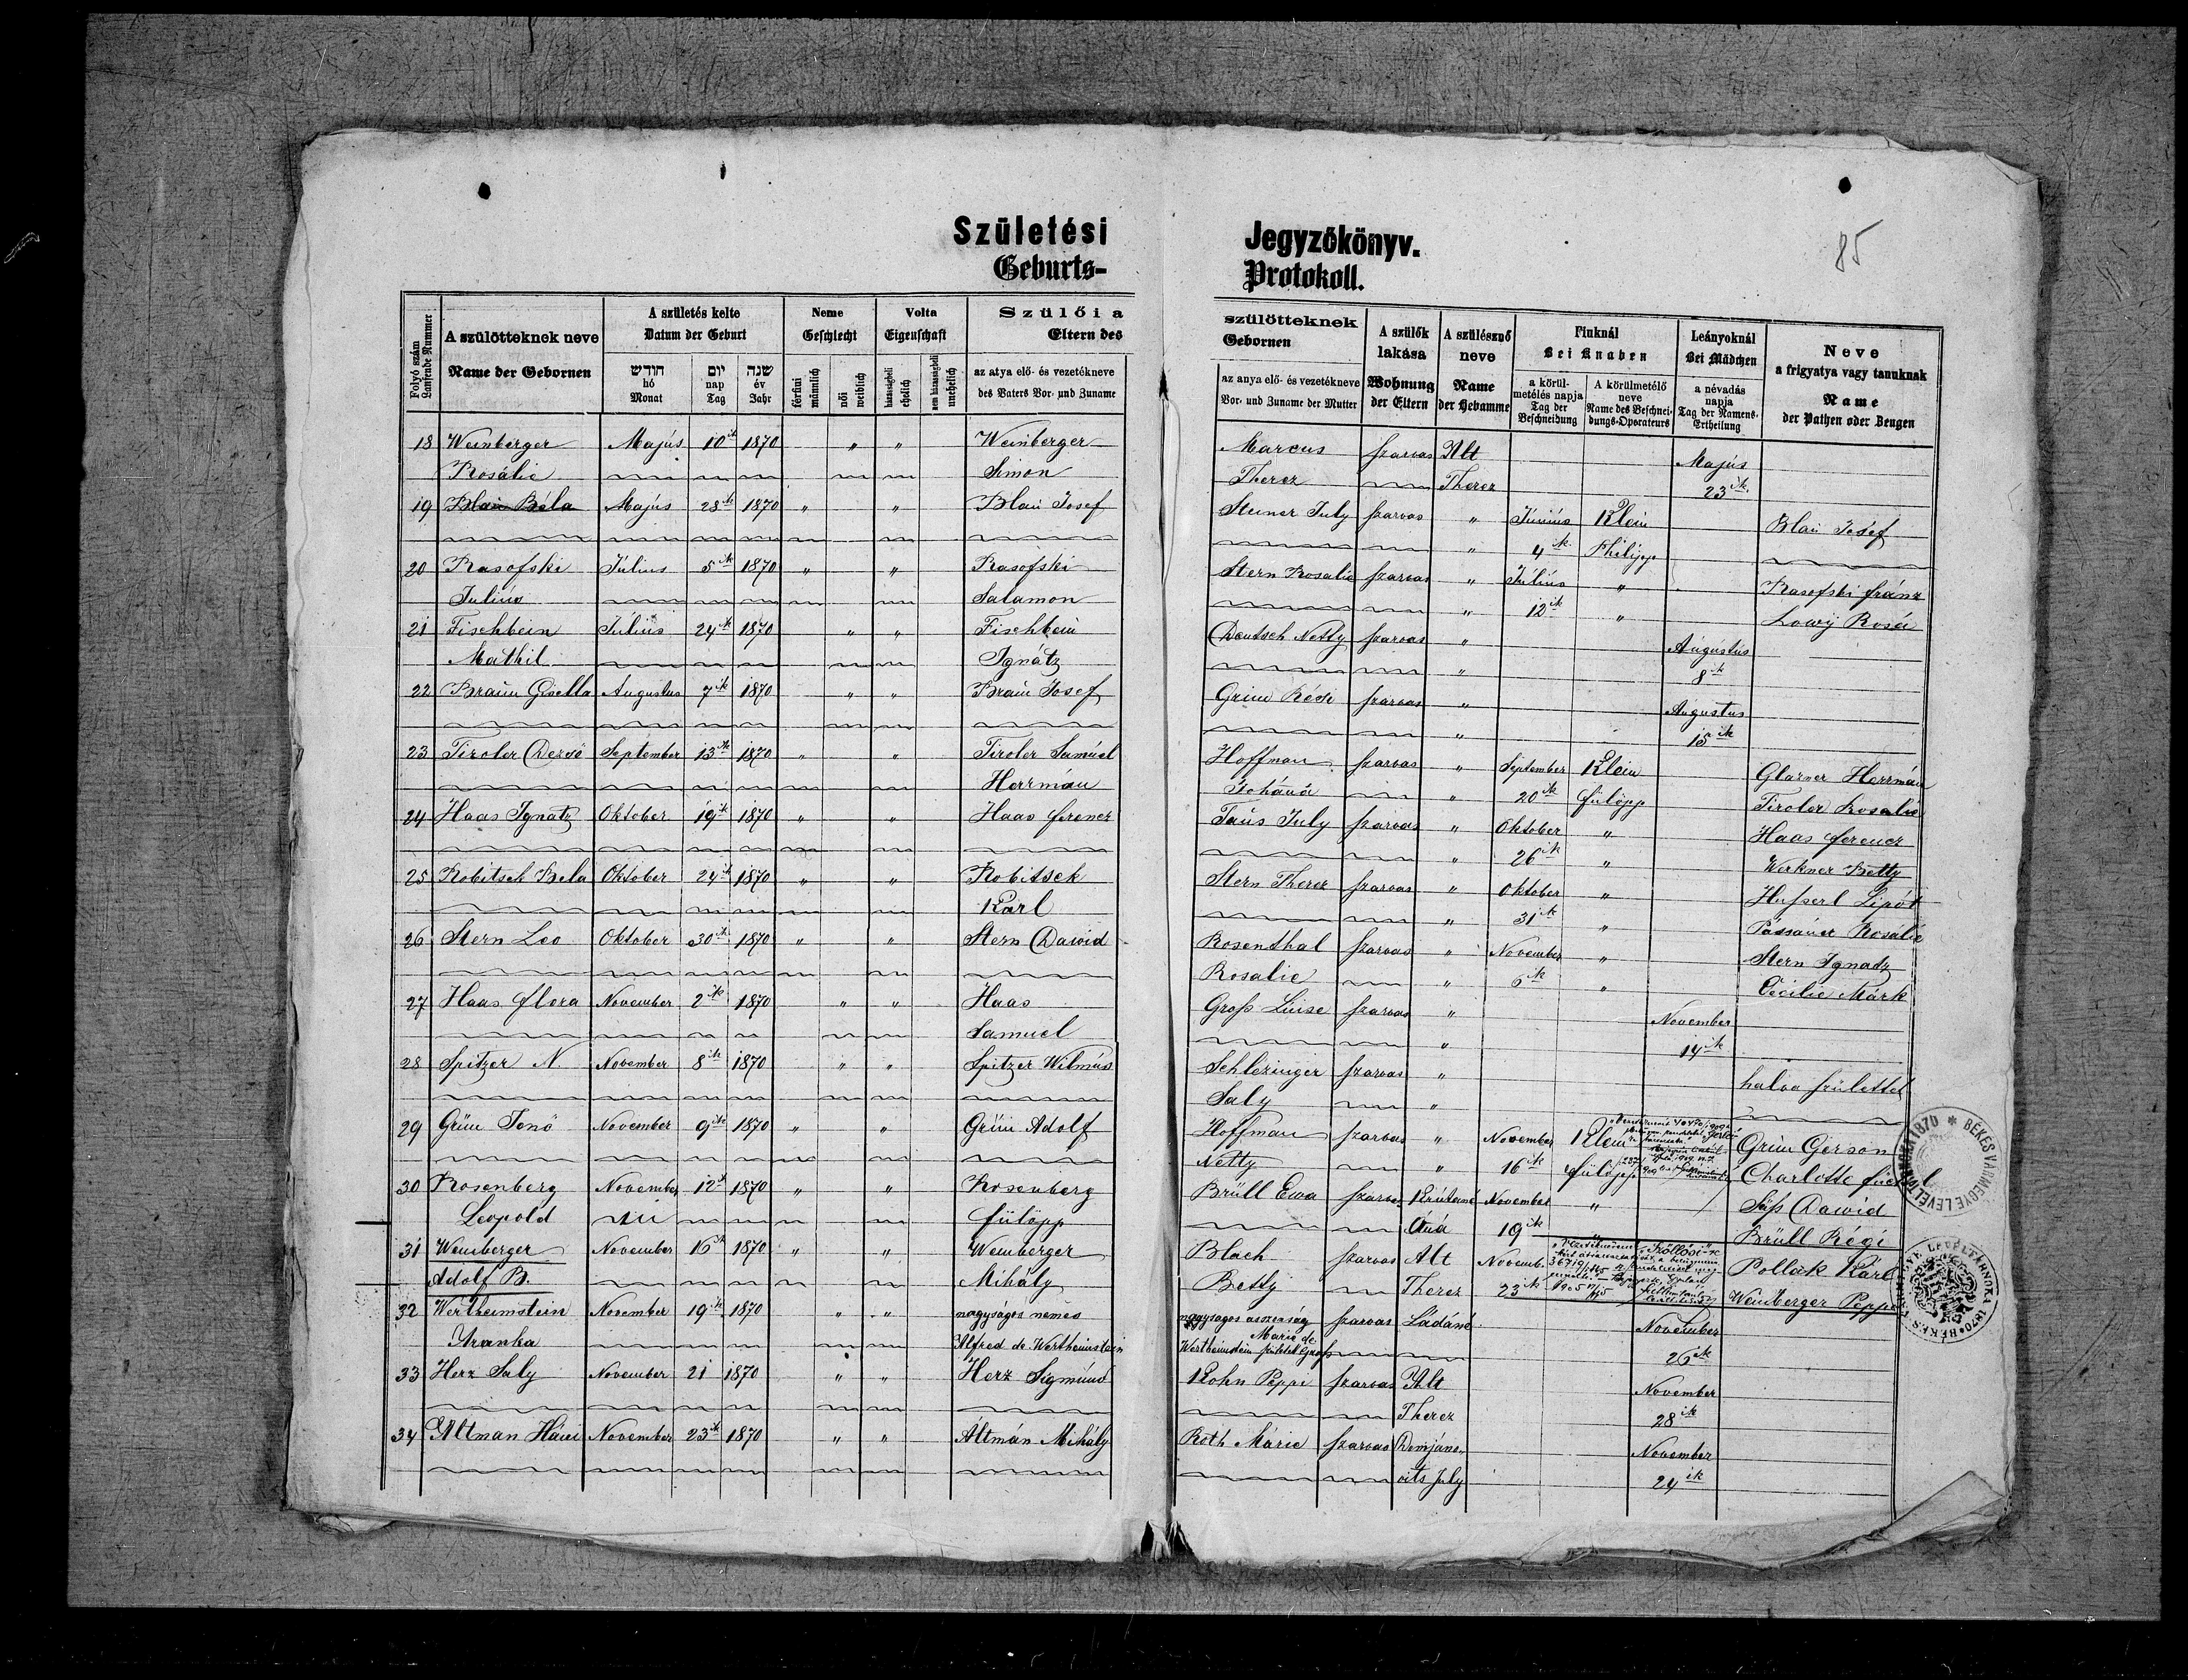 Születési Jegyzőkönyv.
Geburts- Protokoll.
85
Folyó szám
Laufende Nummer
A szülötteknek neve
Name der Gebornen
A születés kelte
Datum der Geburt
חודש
hó
Monat
יום
nap
Tag
שנה
év
Jahr
Neme
Geschlecht
férfiúi
männlich
női
weiblich
Volta
Eigenschaft
házasságbeli
ehelich
nem házasságbeli
unehelich
Szülői a
Eltern des
az atya elő- és vezetékneve
des Vaters Vor- und Zuname
szülötteknek
Gebornen
az anya elő- és vezetékneve
Vor- und Zuname der Mutter
A szülők
lakása
Wohnung
der Eltern
A szülésznő
neve
Name
der Hebamme
Fiuknál
Bei Knaben
a körül-
metélés napja
Tag der
Beschneidung
A körülmetélő
neve
Name des Beschnei-
dungs-Operateurs
Leányoknál
Bei Mädchen
a névadás
napja
Tag der Namens-
Ertheilung
Neve
a frigyatya vagy tanuknak
Name
der Pathen oder Zeugen
18 Weinberger Majús 10ik 1870 " " Weinberger Marcus Szarvas Alt Majús
Rosálie Simon Therez Therez 23ik
19 Blau Béla Majús 28ik 1870 " " Blau Josef Steiner July Szarvas " Június Klein Blau Josef
" 4ik Philipp
20 Rasofski Július 5ik 1870 " " Rasofski Stern Rosalie Szarvas " Július " Rasofski Fránz
Július Salamon " 12ik " Lowy Rosa
21 Fischbein Július 24ik 1870 " " Fischbein Deutsch Netty Szarvas " Augústus
Mathil Ignatz " 8ik
22 Braun Gisella Augustus 7ik 1870 " " Braun Josef Grün Szarvas " Augustus
" 15ik
23 Tiroler Dezsö September 13ik 1870 " " Tiroler Samúel Hoffman Szarvas " September Klein Glasner Herrmán
Herrmán Johána " 20ik Fülöpp Tiroler Rosalie
24 Haas Ignatz Oktober 19ik 1870 " " Haas Ferencz Taus July Szarvas " Oktober " Haas Ferencz
" 26ik " Werkner Betty
25 Robitsek Bela Oktober 24ik 1870 " " Robitsek Stern Therez Szarvas " Oktober " Husserl Lipót
Karl " 31ik " Rosálie
26 Stern Leo Oktober 30ik 1870 " " Stern Dawid Rosenthal Szarvas " November " Stern Ignadz
Rosalie " 6ik " Cecilie Márk
27 Haas Flora November 2ik 1870 " " Haas Groß Luise Szarvas " November
Samuel " 14ik
28 Spitzer N. November 8ik 1870 " " Spitzer Wilmús Schlezinger Szarvas " halva születtet
Saly "
29 Grün Jenö November 9ik 1870 " " Grün Adolf Hoffman Szarvas " November Klein Grün Gerson
Netty " 16ik Fülöpp Charlotte
30 Rosenberg November 12ik 1870 " " Rosenberg Brüll Ewa Szarvas November " Dawid
Leopold Fülöpp 19ik Brüll Régi
31 Weinberger November 16ik 1870 " " Weinberger Blach Szarvas Alt Novemb. Pollák Kárl
Adolf B. Mihály Betty Therez 23ik Weinberger Peppe
32 Wertheimstein November 19ik 1870 " " nagyságos nemes nagysagos asszonság Szarvas Ládáné November
Aranka Alfred de Wertheimstein Marie de Wertheimstein született Groß 26ik
33 Herz Saly November 21 1870 " " Herz Sigmúnd Kohn Peppi Szarvas Alt November
Therez 28ik
34 Altman Háni November 23ik 1870 " " Altmán Mihály Roth Márie Szarvas Demjáno- November
vits July 24ik
BÉKÉS VÁRMEGYE LEVÉLTÁRNOKA 1870
BÉKÉS VÁRMEGYE LEVÉLTÁRNOKA 1870